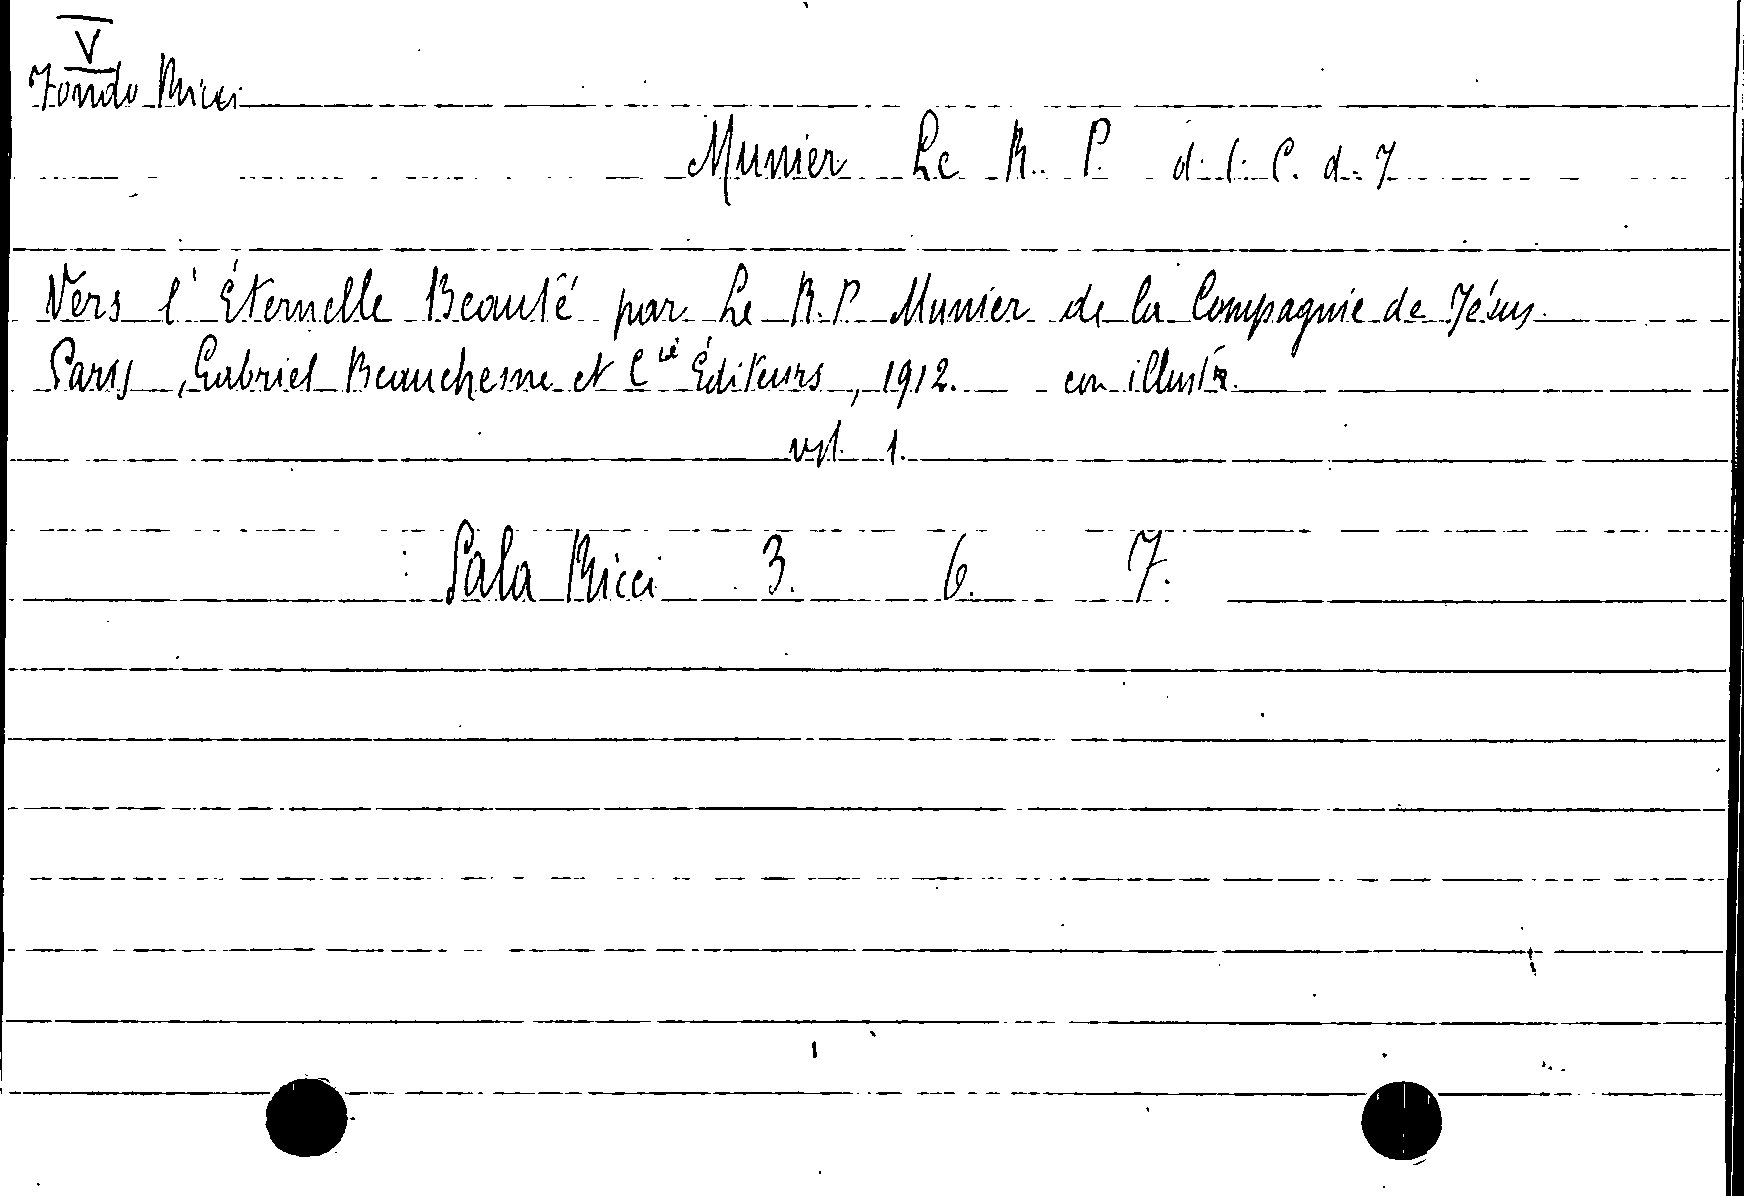 V
Fondo Ricci
Munier Le R. P. d. l. C. d. J
Vers l'Éternelle Beauté par Le R.P Munier de la Compagnie de Jésus.
Paris, Gabriel Beauchesne et Cie Éditeurs, 1912. con illustr.
vol. 1.
Sala Ricci 3. 6. 7.